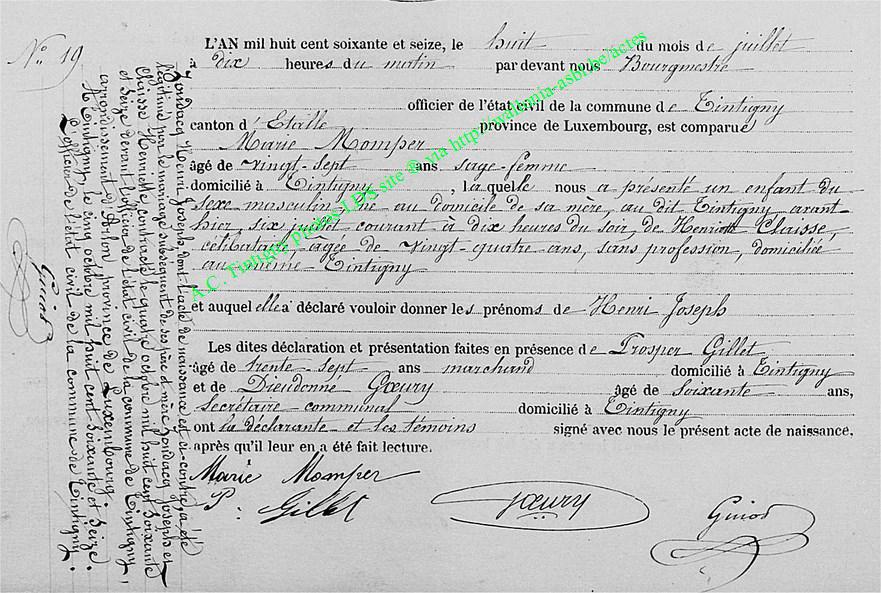 N° 19
L'AN mil huit cent soixante et seize, le huit du mois de juillet
à dix heures du matin par devant nous Bourgmestre
officier de l'état civil de la commune de Tintigny
canton d'Etalle province de Luxembourg, est comparue
Marie Momper
âgé de vingt-sept ans sage-femme
domicilié à Tintigny, laquelle nous a présenté un enfant du
sexe masculin né au domicile de sa mère, au dit Tintigny avant-
hier, six juillet courant à dix heures du soir, de Henriette Claisse,
célibataire, agée de vingt-quatre ans, sans profession, domiciliée
au même Tintigny
et auquel elle a déclaré vouloir donner les prénoms de Henri Joseph
Les dites déclaration et présentation faites en présence de Prosper Gillet
âgé de trente sept ans marchand domicilié à Tintigny
et de Dieudonné Goeury âgé de soixante ans,
secrétaire communal domicilié à Tintigny
ont la déclarante et les témoins signé avec nous le présent acte de naissance,
après qu'il leur en a été fait lecture.
Marie Momper
P. Gillet
Goeury
Guiot
Jondacq Henri Joseph, dont l'acte de naissance est ci-contre, a été
légitimé par le mariage subséquent de ses père et mère Jondacq Joseph et
Claisse Henriette contracté le quatre octobre mil huit cent soixante
et seize devant l'officier de l'état civil de la commune de Tintigny,
arrondissement d'Arlon, province de Luxembourg.
A Tintigny, le cinq octobre mil huit cent soixante et seize.
L'officier de l'état civil de la commune de Tintigny.
Guiot
A.C. Tintigny photos I.D's site ® via http://walhania-asbl.be/actes